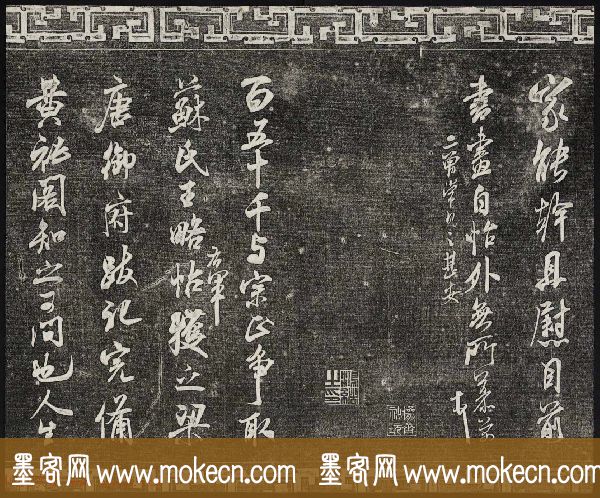 家能幹且慰目前
書畫自怡外無所慕
二曾常見之甚安
百五十千与宗正爭取
蘇氏王略帖獲之梁
右軍
唐御府跋記完備
黃祕閣知之可問也人生
墨客网 www.mokecn.com 墨客网 www.mokecn.com